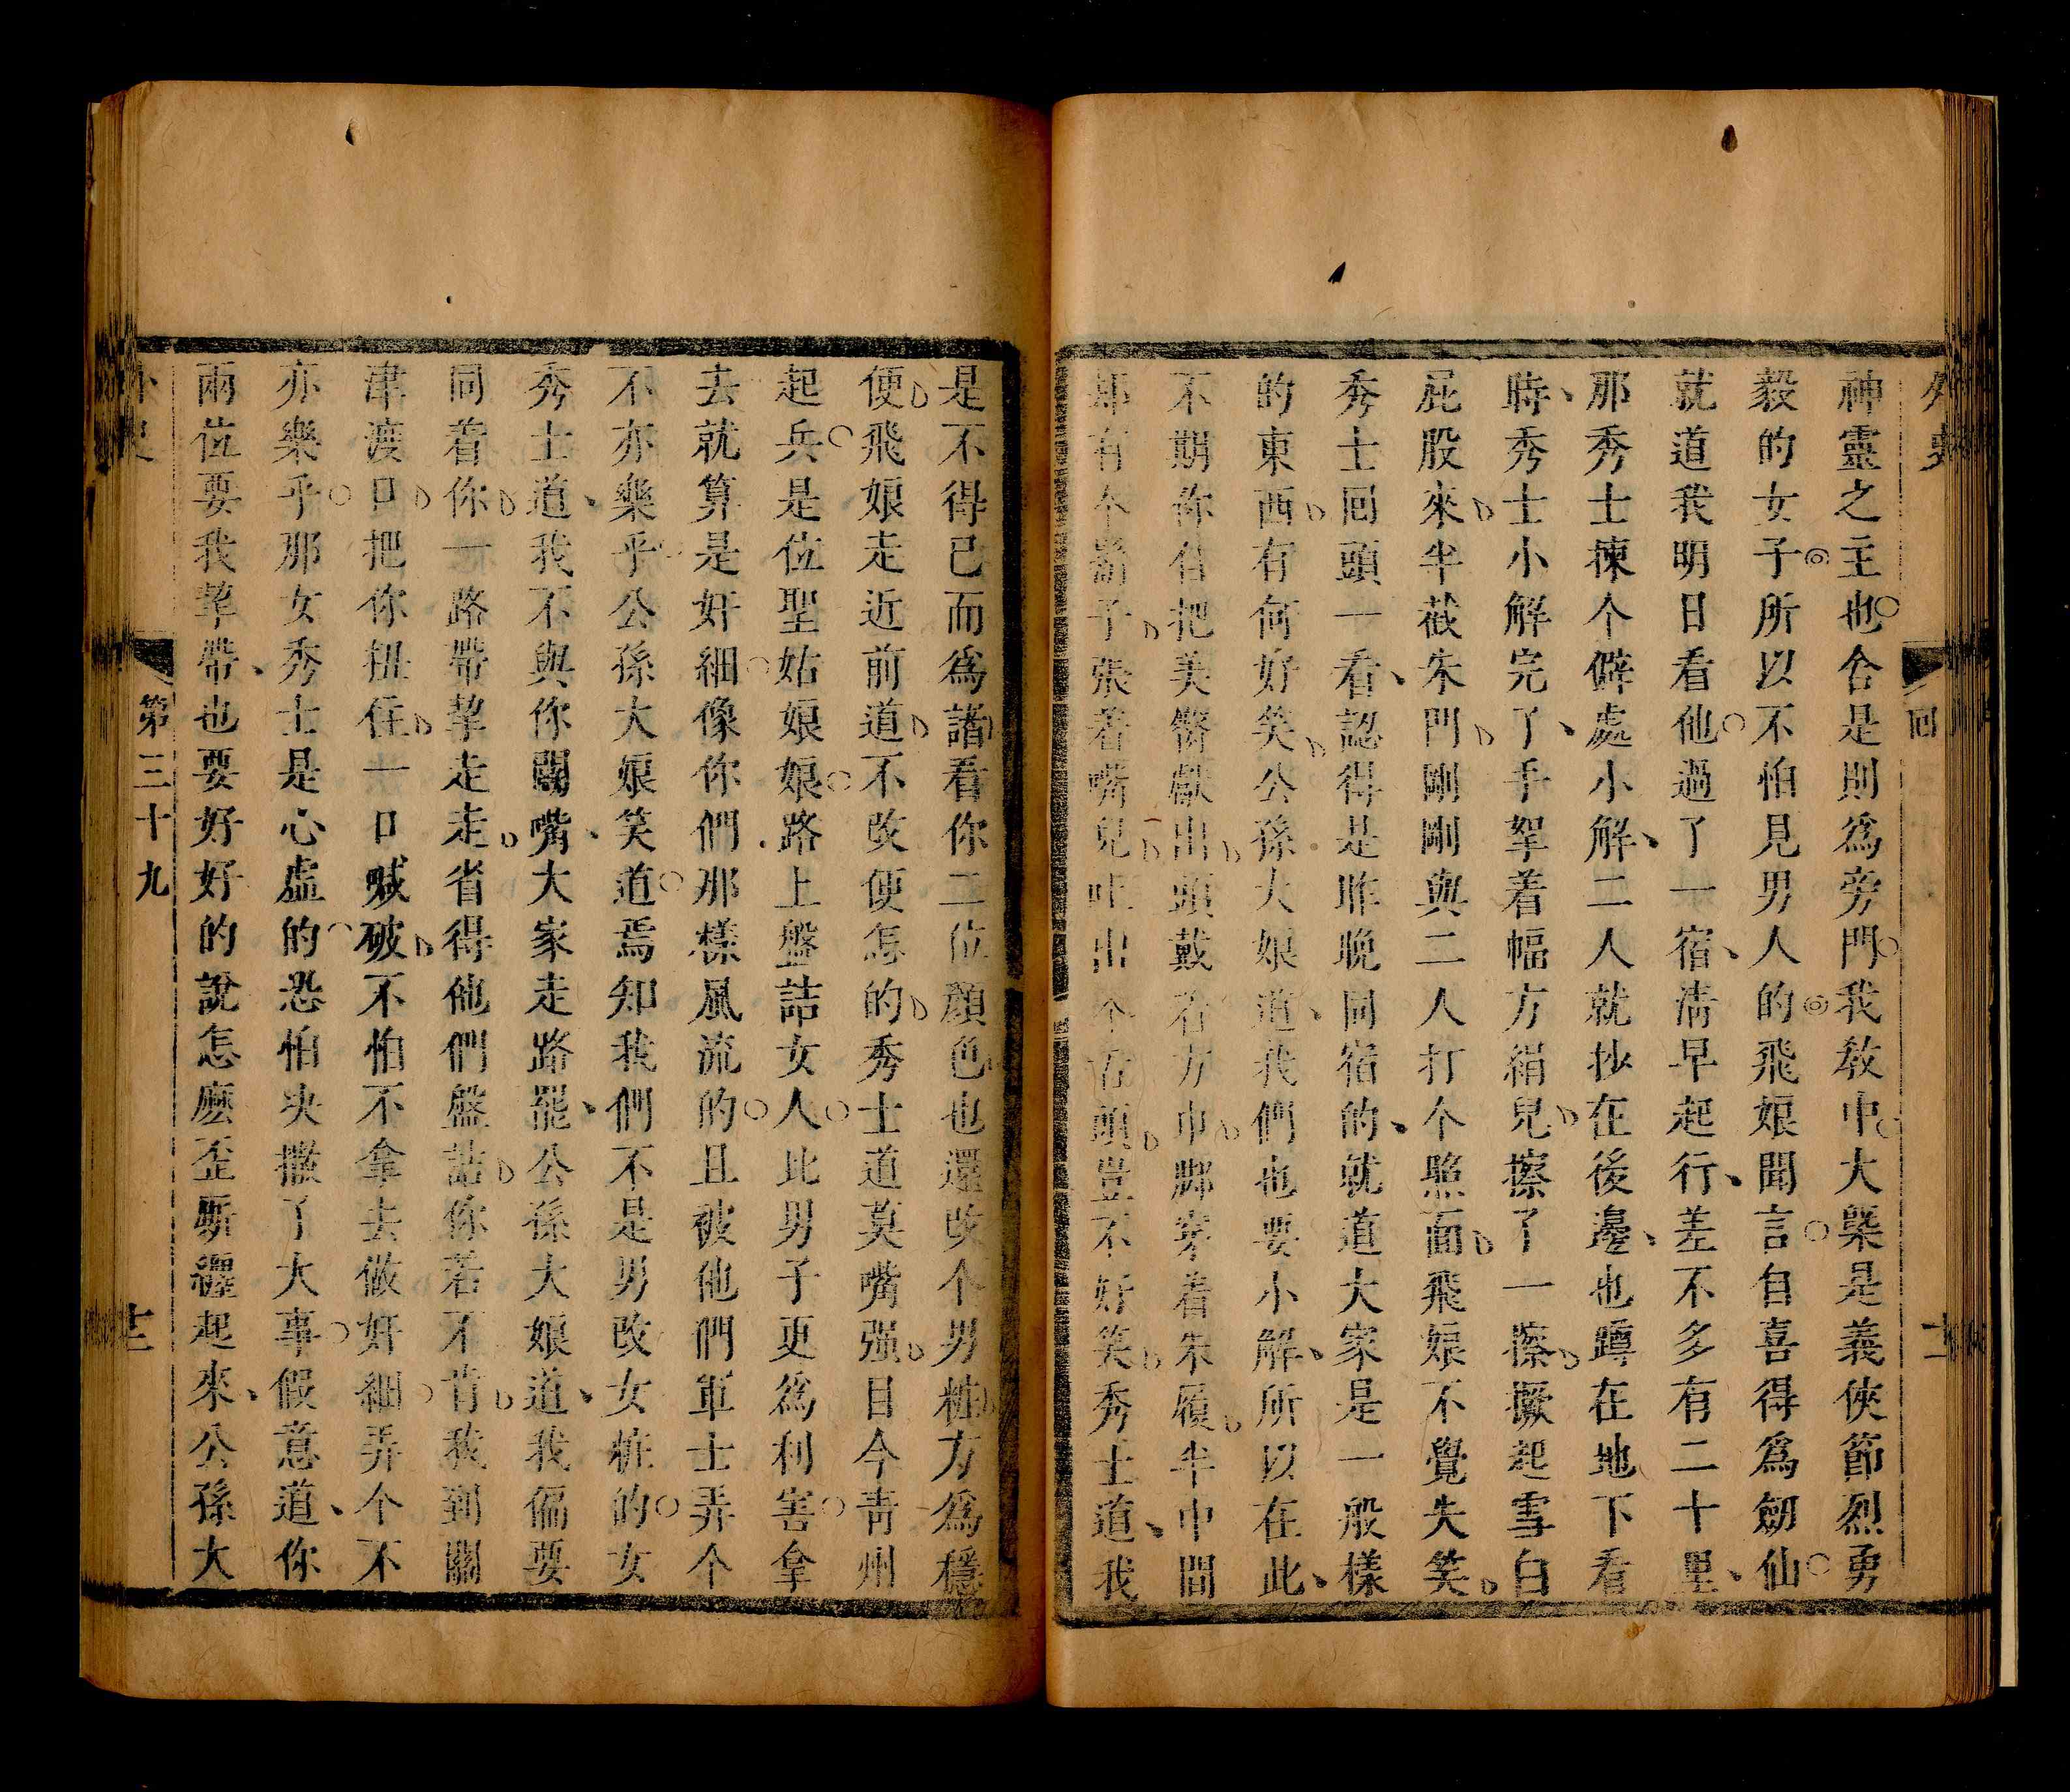 外史
回
十二
神靈之主也合是則為旁門我教中大槩是義俠節烈勇
毅的女子所以不怕見男人的飛娘聞言自喜得為劒仙
就道我明日看他過了一宿淸早起行差不多有二十里
那秀士揀个僻處小解二人就抄在後邊也蹲在地下看
時秀士小解完了手拏着幅方絹兒擦了一擦撅起雪白
屁股來半截朱門剛剛與二人打个照面飛娘不覺失笑
秀士回頭一看認得是昨晚同宿的就道大家是一般樣
的東西有何好笑公孫大娘道我們也要小解所以在此
不期你任把美臀獻出頭戴着方巾脚穿着朱履半中間
却有个鬍子張着嘴兒吐出个舌頭豈不好笑秀士道我
是不得已而為諸看你二位顏色也還改个男粧方為穩
便飛娘走近前道不改便怎的秀士道莫嘴强目今靑州
起兵是位聖姑娘娘路上盤詰女人比男子更為利害拿
去就算是奸細像你們那樣風流的且被他們軍士弄个
不亦樂乎公孫大娘笑道焉知我們不是男改女粧的女
秀士道我不與你鬭嘴大家走路罷公孫大娘道我偏要
同着你一路帶挈走走省得他們盤詰你若不肯我到關
津渡口把你扭住一口喊破不怕不拿去做奸細弄个不
亦樂乎那女秀士是心虛的恐怕決撒了大事假意道你
兩位要我挈帶也要好好的說怎麽歪厮纏起來公孫大
外史
第三十九
十三